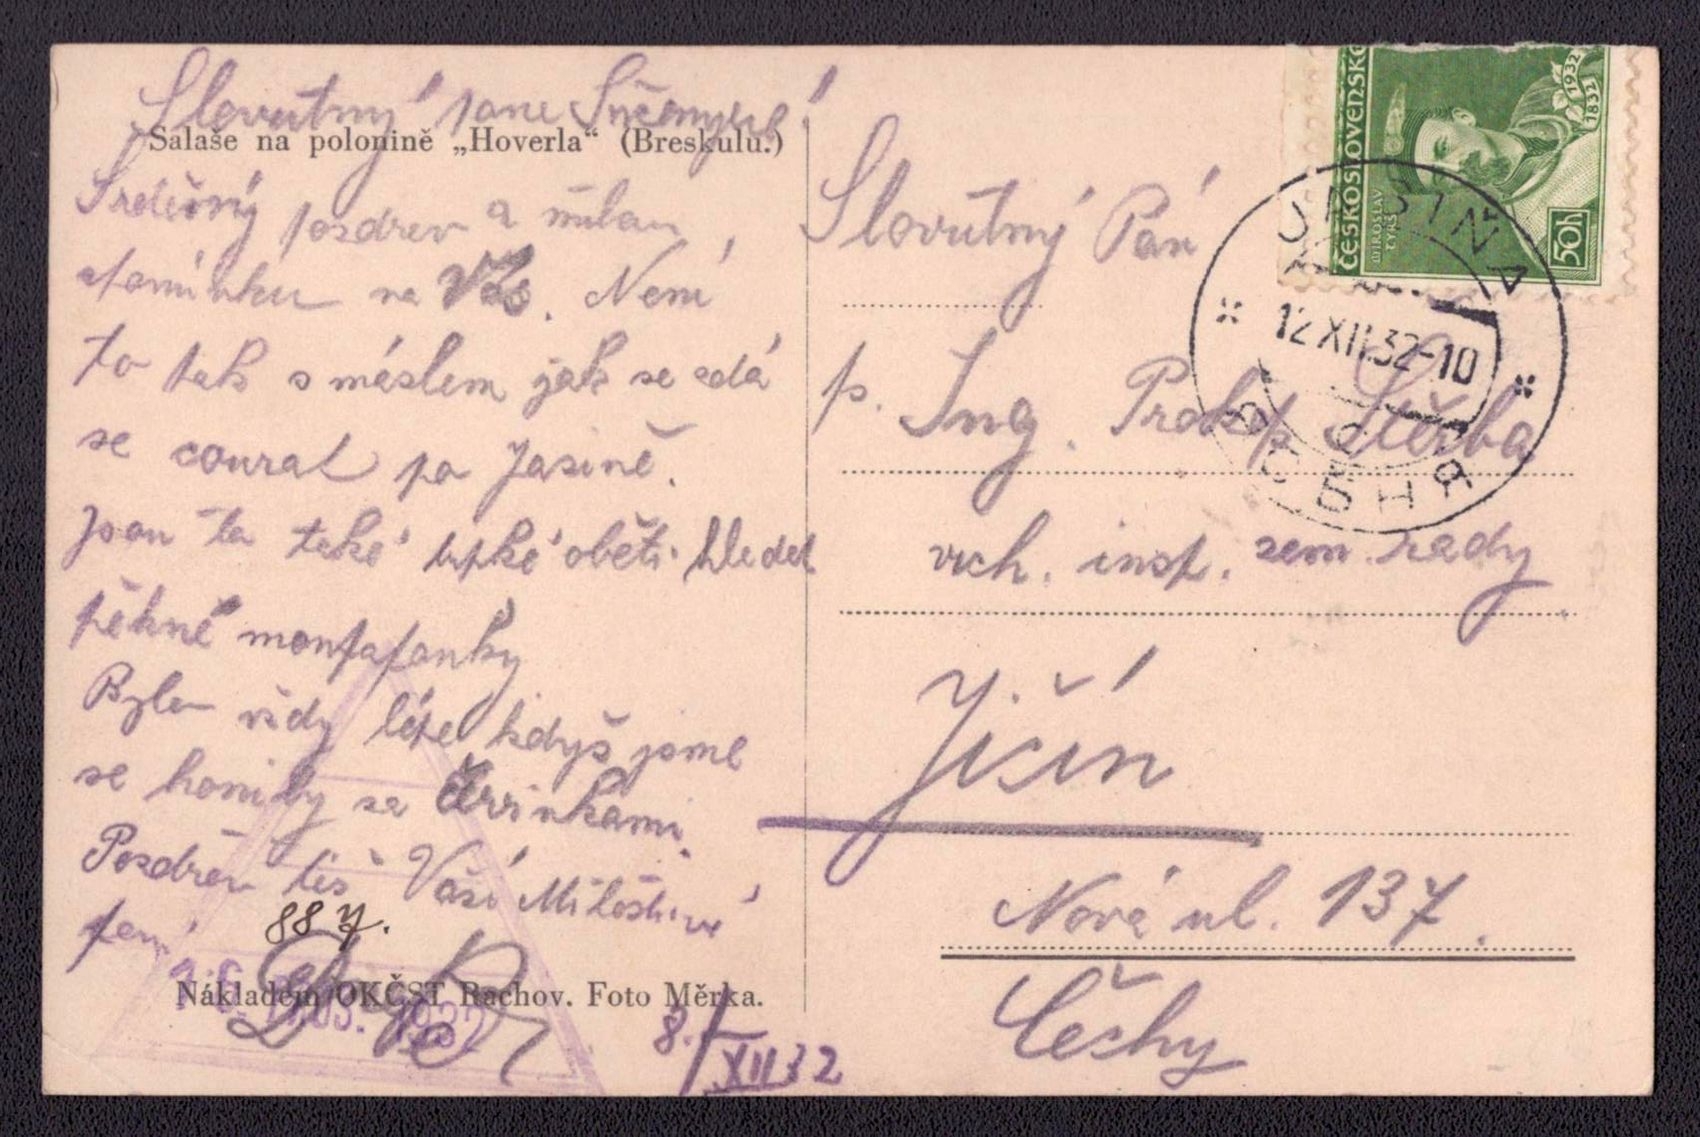 Slovutný pane
Salaše na polonině „Hoverla“ (Breskulu.)
Srdečný pozdrav a milou
na Vás. Není
to tak s máslem jak se zdá
se courat po Jasině.
Jsou tu také oběti. hledat
pěkné
Bylo vždy lépe když jsme
se honily se
Pozdrav též Vaší Milostivé
paní
88 y.
Nákladem OKČST Rachov. Foto Měrka.
1932
8./XII 32
ČESKOSLOVENSKO
MIROSLAV
TYRŠ
1832 1932
50h
JASIŇA
12.XII.32-10
ЯСІНЯ
Slovutný Pán
p. Ing. Prokop Štěrba
vrch. insp. zem. rady
Jičín
Nová ul. 137.
Čechy